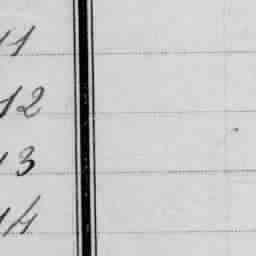 11
12
13
14